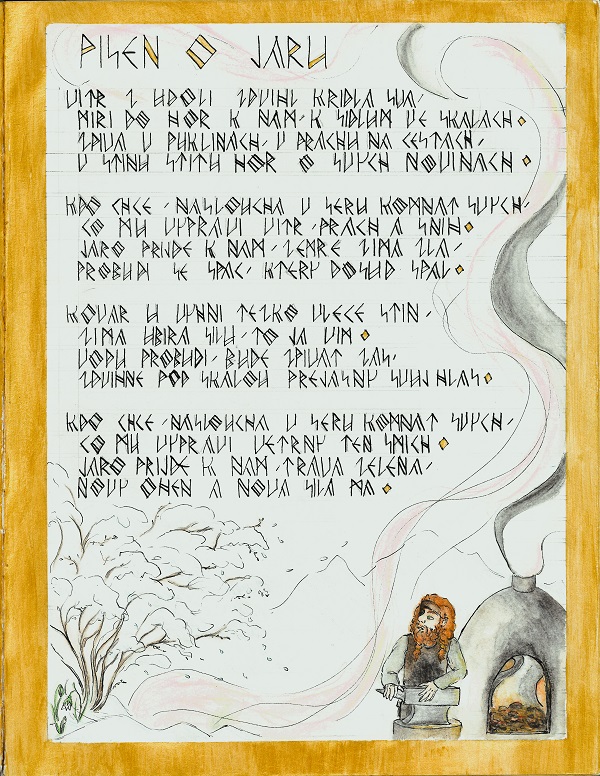 PISEN O JARU
VITR Z UDOLI ZDVIHL KRIDLA SVA,
MIRI DO HOR K NAM, K SIDLUM VE SKALACH.
ZPIVA V PUKLINACH, V PRACHU NA CESTACH,
V STINU STITU HOR O SVYCH NOVINACH.
KDO CHCE, NASLOUCHA V SERU KOMNAT SVYCH,
CO MU VYPRAVI VITR, PRACH A SNIH.
JARO PRIJDE K NAM, ZEMRE ZIMA ZLA,
PROBUDI SE SPAC, KTERY DOSUD SPAL.
KOVAR U VYHNI TEZKO VLECE STIN,
ZIMA UBIRA SILU, TO JA VIM.
VODU PROBUDI, BUDE ZPIVAT ZAS,
ZDVIHNE POD SKALOU PREJASNY SVUJ HLAS.
KDO CHCE, NASLOUCHA V SERU KOMNAT SVYCH,
CO MU VYPRAVI VETRNY TEN SMICH.
JARO PRIJDE K NAM, TRAVA ZELENA,
NOVY OHEN A NOVA SILA MA.